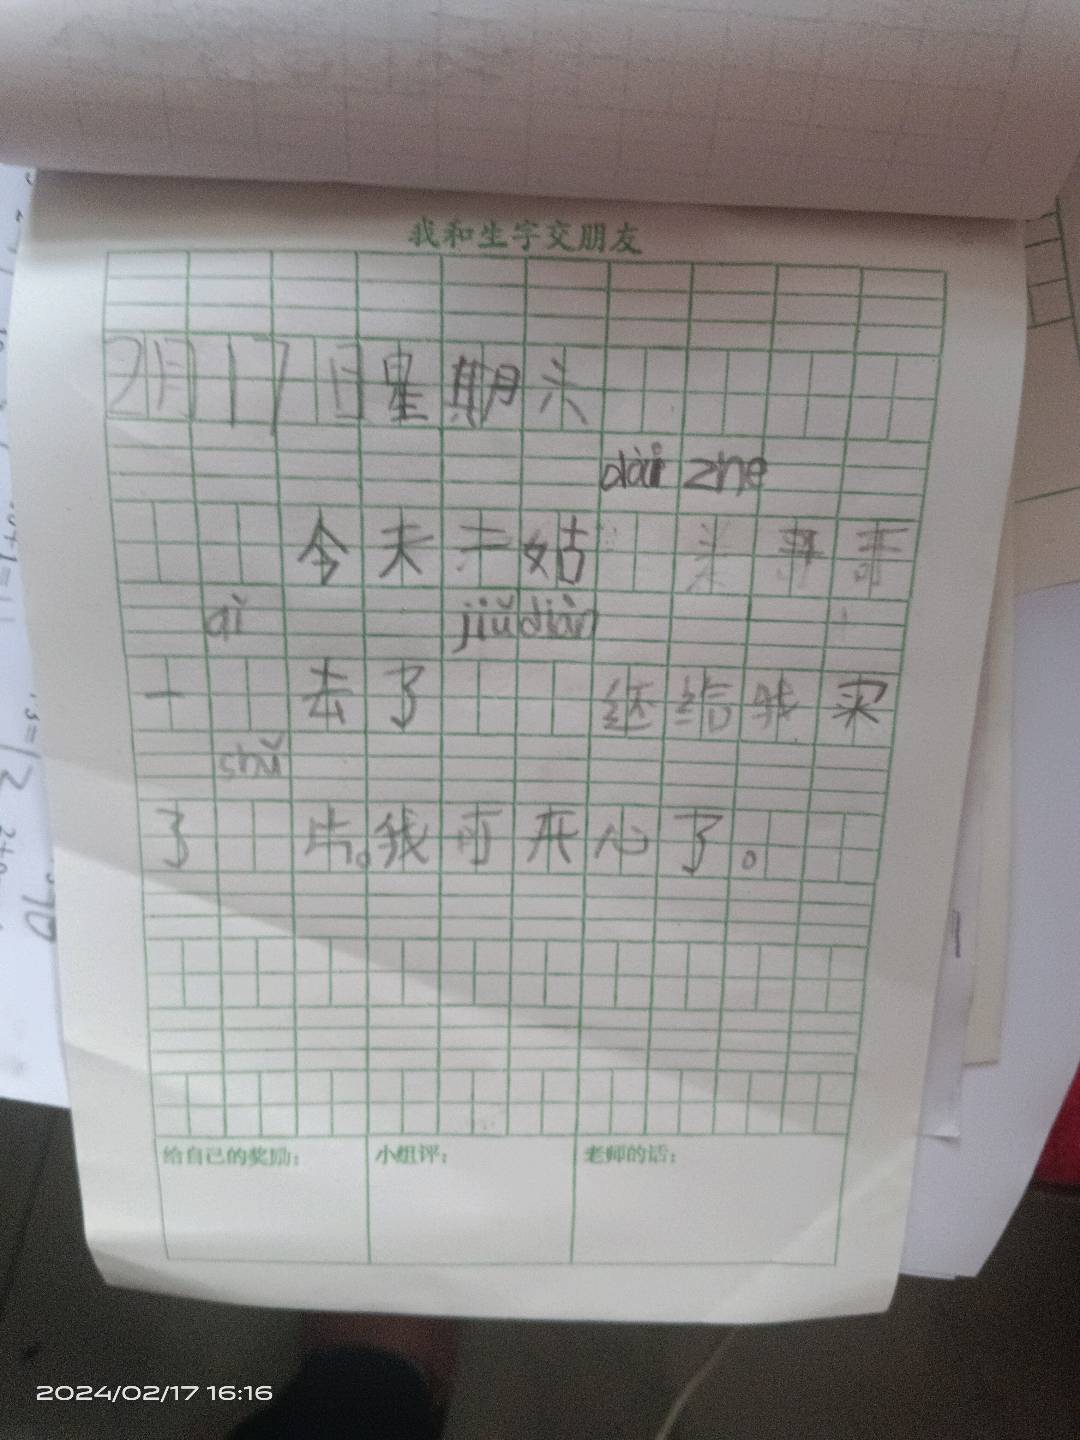 我和生字交朋友
2月17日星期六
dài zhe
今天二姑
qǐ jiǔdiàn
一 去了 还给我买
shǔ
了 片。我可开心了。
给自己的奖励： 小组评： 老师的话：
2024/02/17 16:16